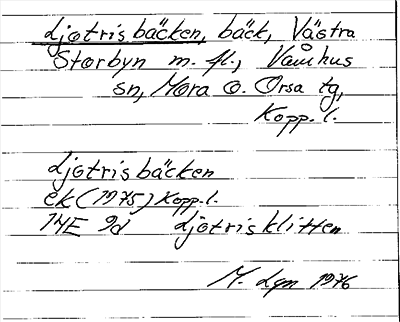 Ljotrisbäcken, bäck, Västra
Storbyn m. fl., Våmhus
sn, Mora o. Orsa tg,
Kopp. l.
Ljotrisbäcken
ek (1975) Kopp. l.
14E 9d Ljotrisklitten
M. Lgn 1976